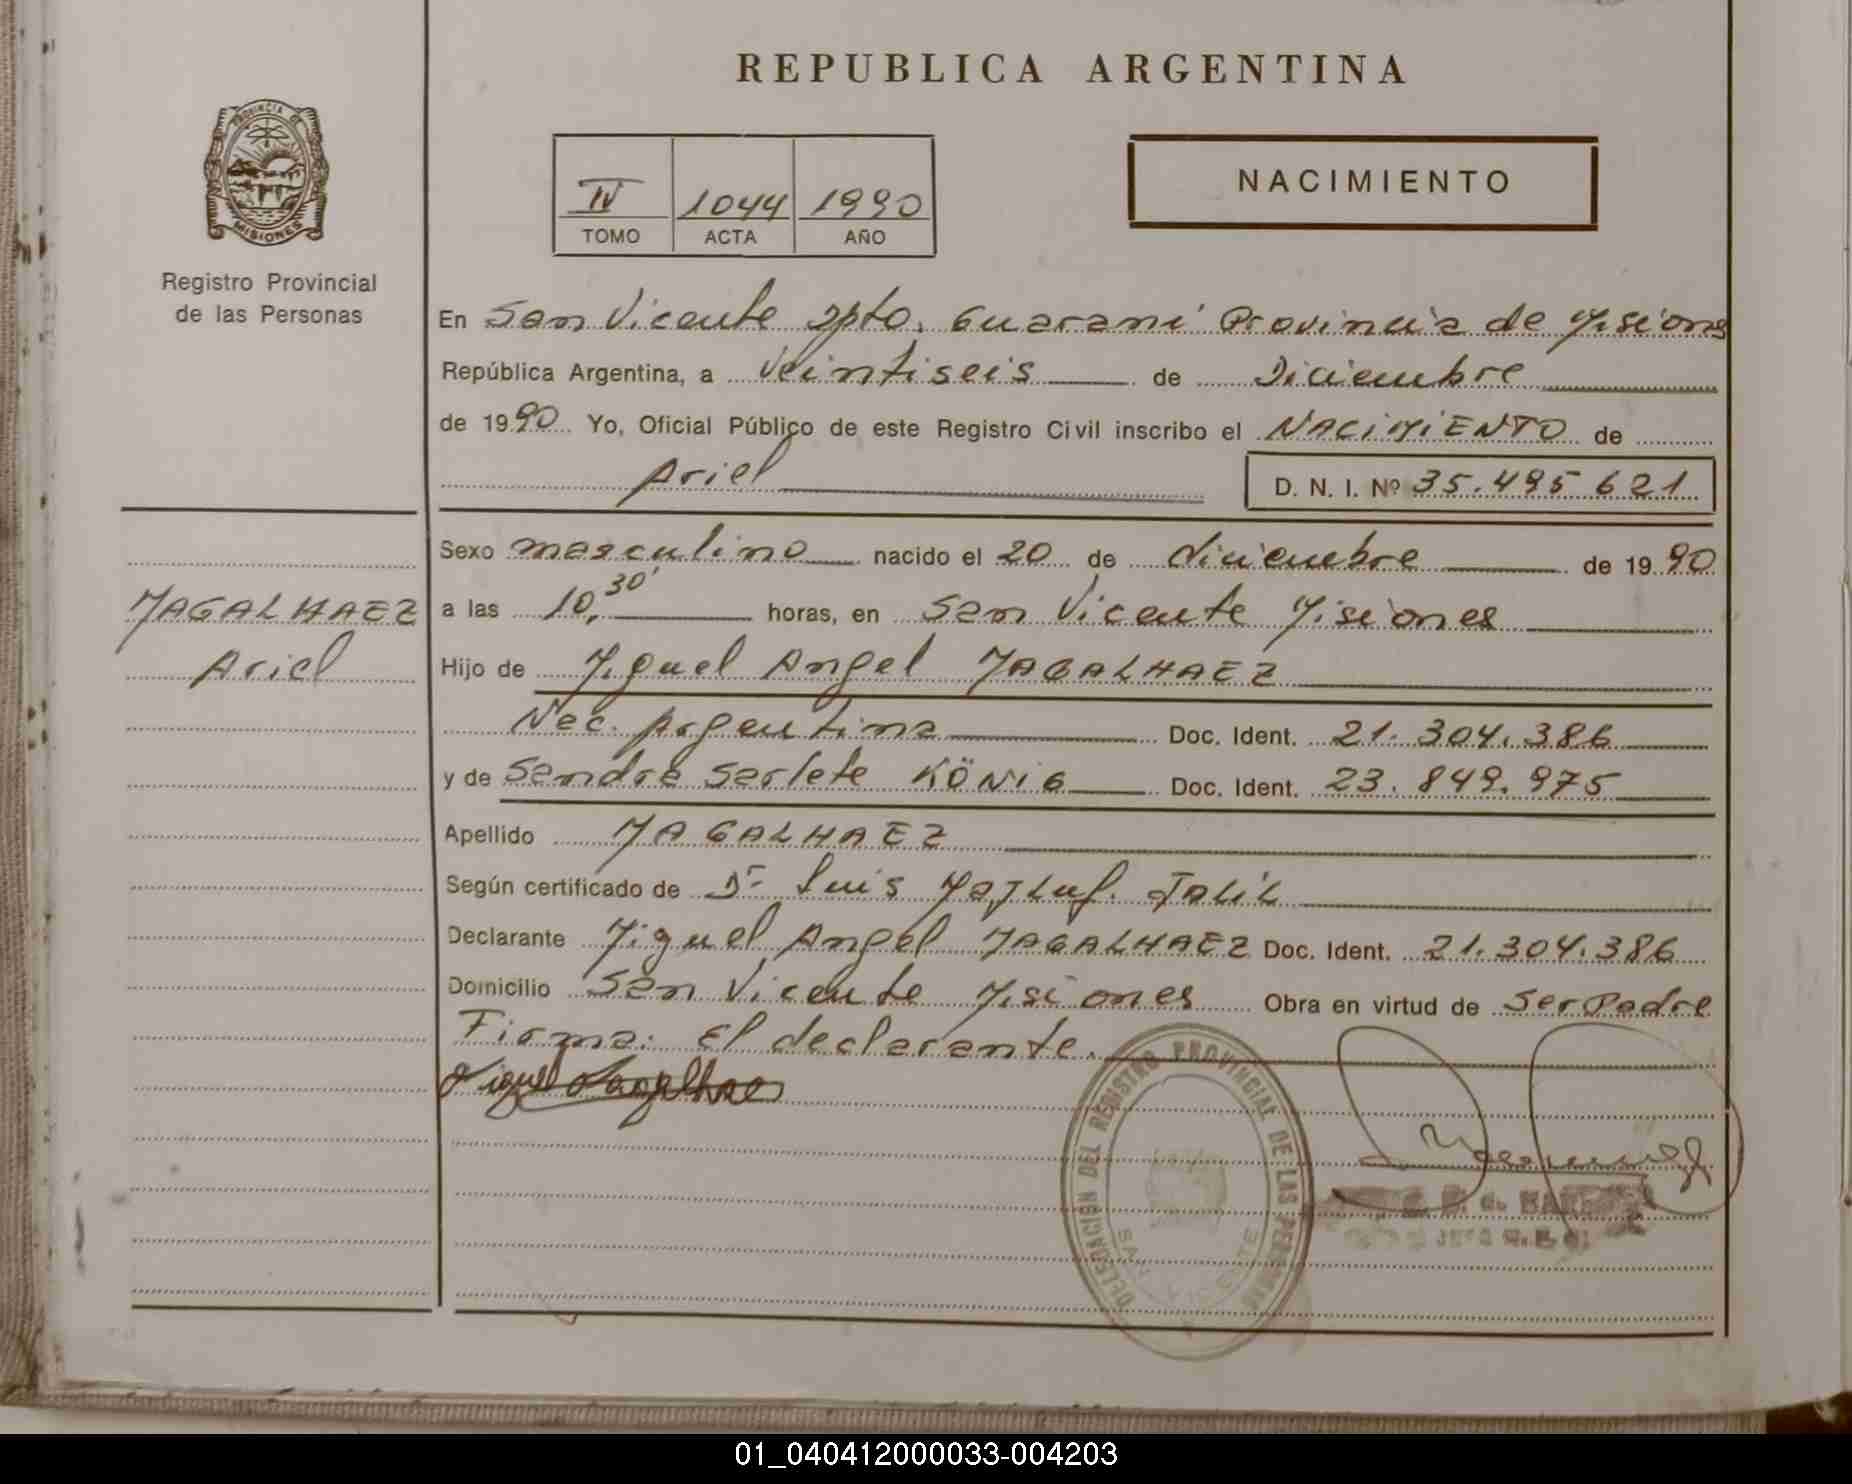 REPUBLICA ARGENTINA
PROVINCIA DE
MISIONES
Registro Provincial
de las Personas
IV 1044 1990
TOMO ACTA AÑO
NACIMIENTO
En San Vicente Dpto. Guarani Provincia de Misiones
República Argentina, a Veintiseis de Diciembre
de 1990 Yo, Oficial Público de este Registro Civil inscribo el NACIMIENTO de
Ariel D. N. I. Nº 35.495 621
Sexo masculino nacido el 20 de diciembre de 1990
MAGALHAEZ
Ariel
a las 10,30' horas, en San Vicente Misiones
Hijo de Miguel Angel MAGALHAEZ
Nac. Argentina Doc. Ident. 21.304.386
y de Sandra Sarlete KÖNIG Doc. Ident. 23.849.975
Apellido MAGALHAEZ
Según certificado de Dr Luis Jalil
Declarante Miguel Angel MAGALHAEZ Doc. Ident. 21.304.386
Domicilio San Vicente Misiones Obra en virtud de Ser Padre
Firma: El declarante.
DELEGACION DEL REGISTRO PROVINCIAL DE LAS PERSONAS
SAN VICENTE
01_040412000033-004203